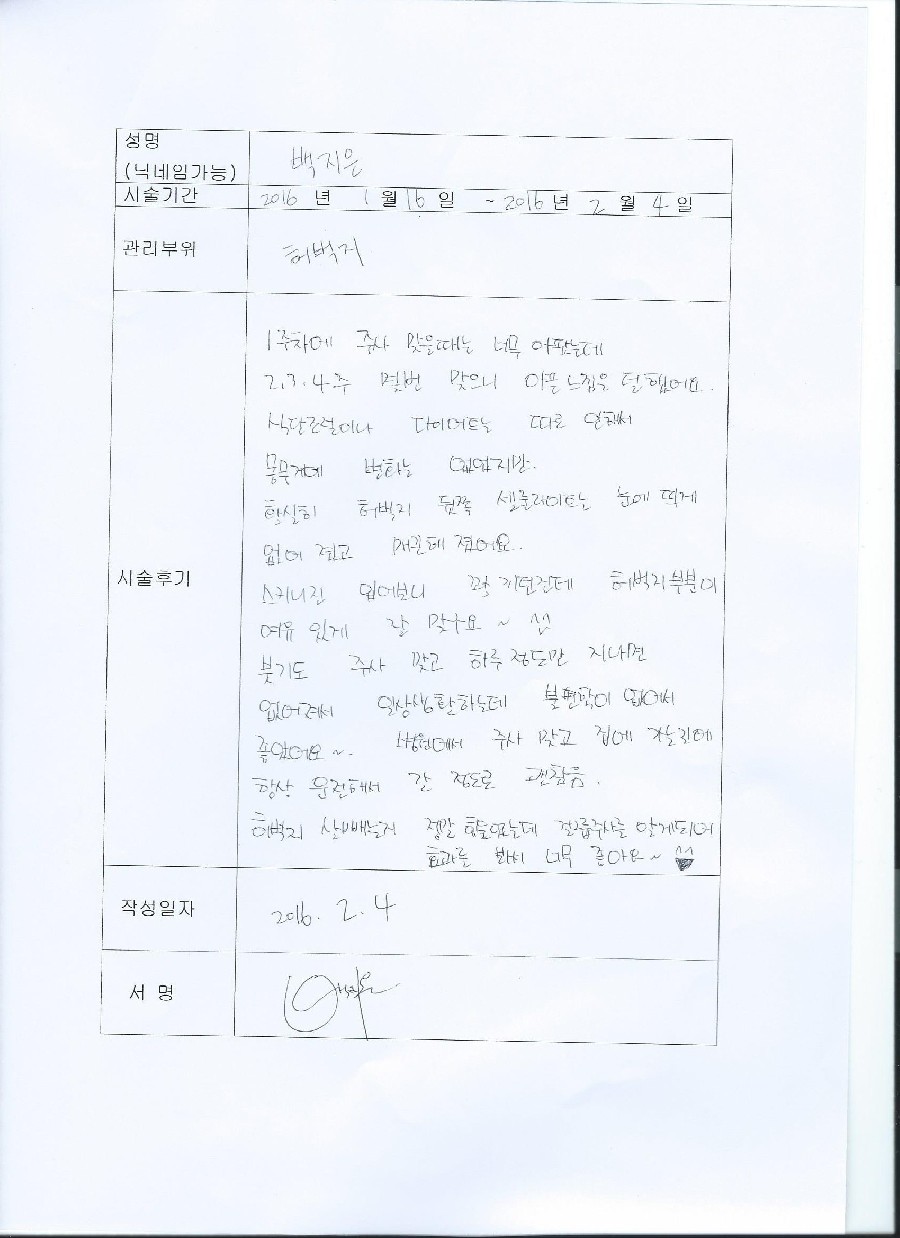 성명
(닉네임가능)
백지은
시술기간
2016 년 1 월 16 일 ~ 2016 년 2 월 4 일
관리부위
허벅지
시술후기
1주차에 주사 맞을때는 너무 아팠는데
2, 3, 4주 몇번 맞으니 아픈 느낌은 덜했어요.
식단조절이나 다이어트는 따로 안해서
몸무게에 변화는 없었지만.
확실히 허벅지 뒤쪽 셀룰레이트는 눈에 띄게
없어 졌고 매끈해 졌어요.
스키니진 입어보니 꽉 끼던건데 허벅지부분이
여유 있게 잘 맞구요~ ^^
붓기도 주사 맞고 하루 정도만 지나면
없어져서 일상생활하는데 불편함이 없어서
좋았어요~. 병원에서 주사 맞고 집에 가는길에
항상 운전해서 갈 정도로 괜찮음.
허벅지 살빼는게 정말 힘들었는데 걸그룹주사를 알게되어
효과를 봐서 너무 좋아요~ ^^ ♥
작성일자
2016. 2. 4
서 명
백지은